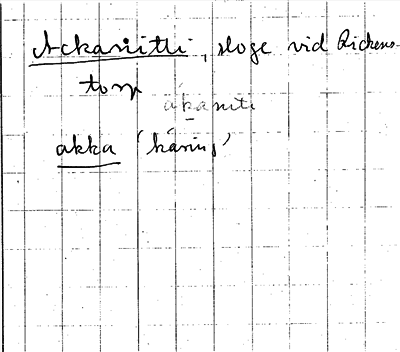 Ackaniitti, sloge vid Rickens-
torp
akaniti
akka 'käring'